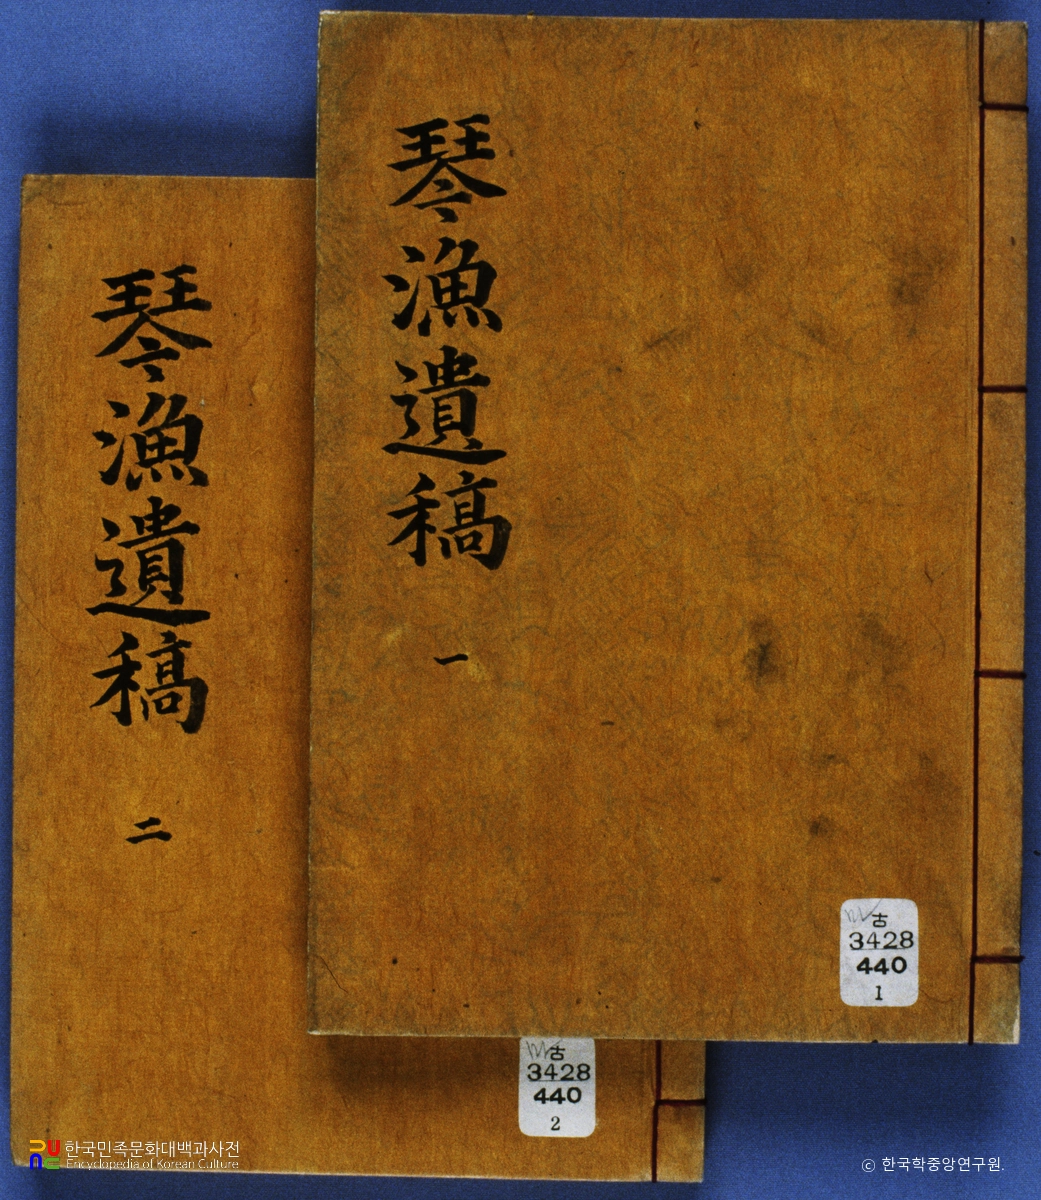 琴漁遺稿
一
古
3428
440
1
琴漁遺稿
二
古
3428
440
2
한국민족문화대백과사전
Encyclopedia of Korean Culture
© 한국학중앙연구원.